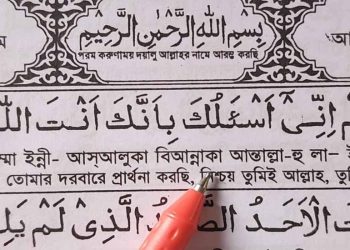 بِسْمِ اللهِ الرَّحْمٰنِ الرَّحِيْمِ
পরম করুণাময় দয়ালু আল্লাহর নামে আরম্ভ করছি
اِنِّىْ اَسْئَلُكَ بِاَنَّكَ اَنْتَ اللّٰ
ম্মা ইন্নী- আস্আলুকা বিআন্নাকা আন্তাল্লা-হু লা-
তোমার দরবারে প্রার্থনা করছি, নিশ্চয় তুমিই আল্লাহ,
الْاَحَدُ الصَّمَدُ الَّذِىْ لَمْ يَلِ